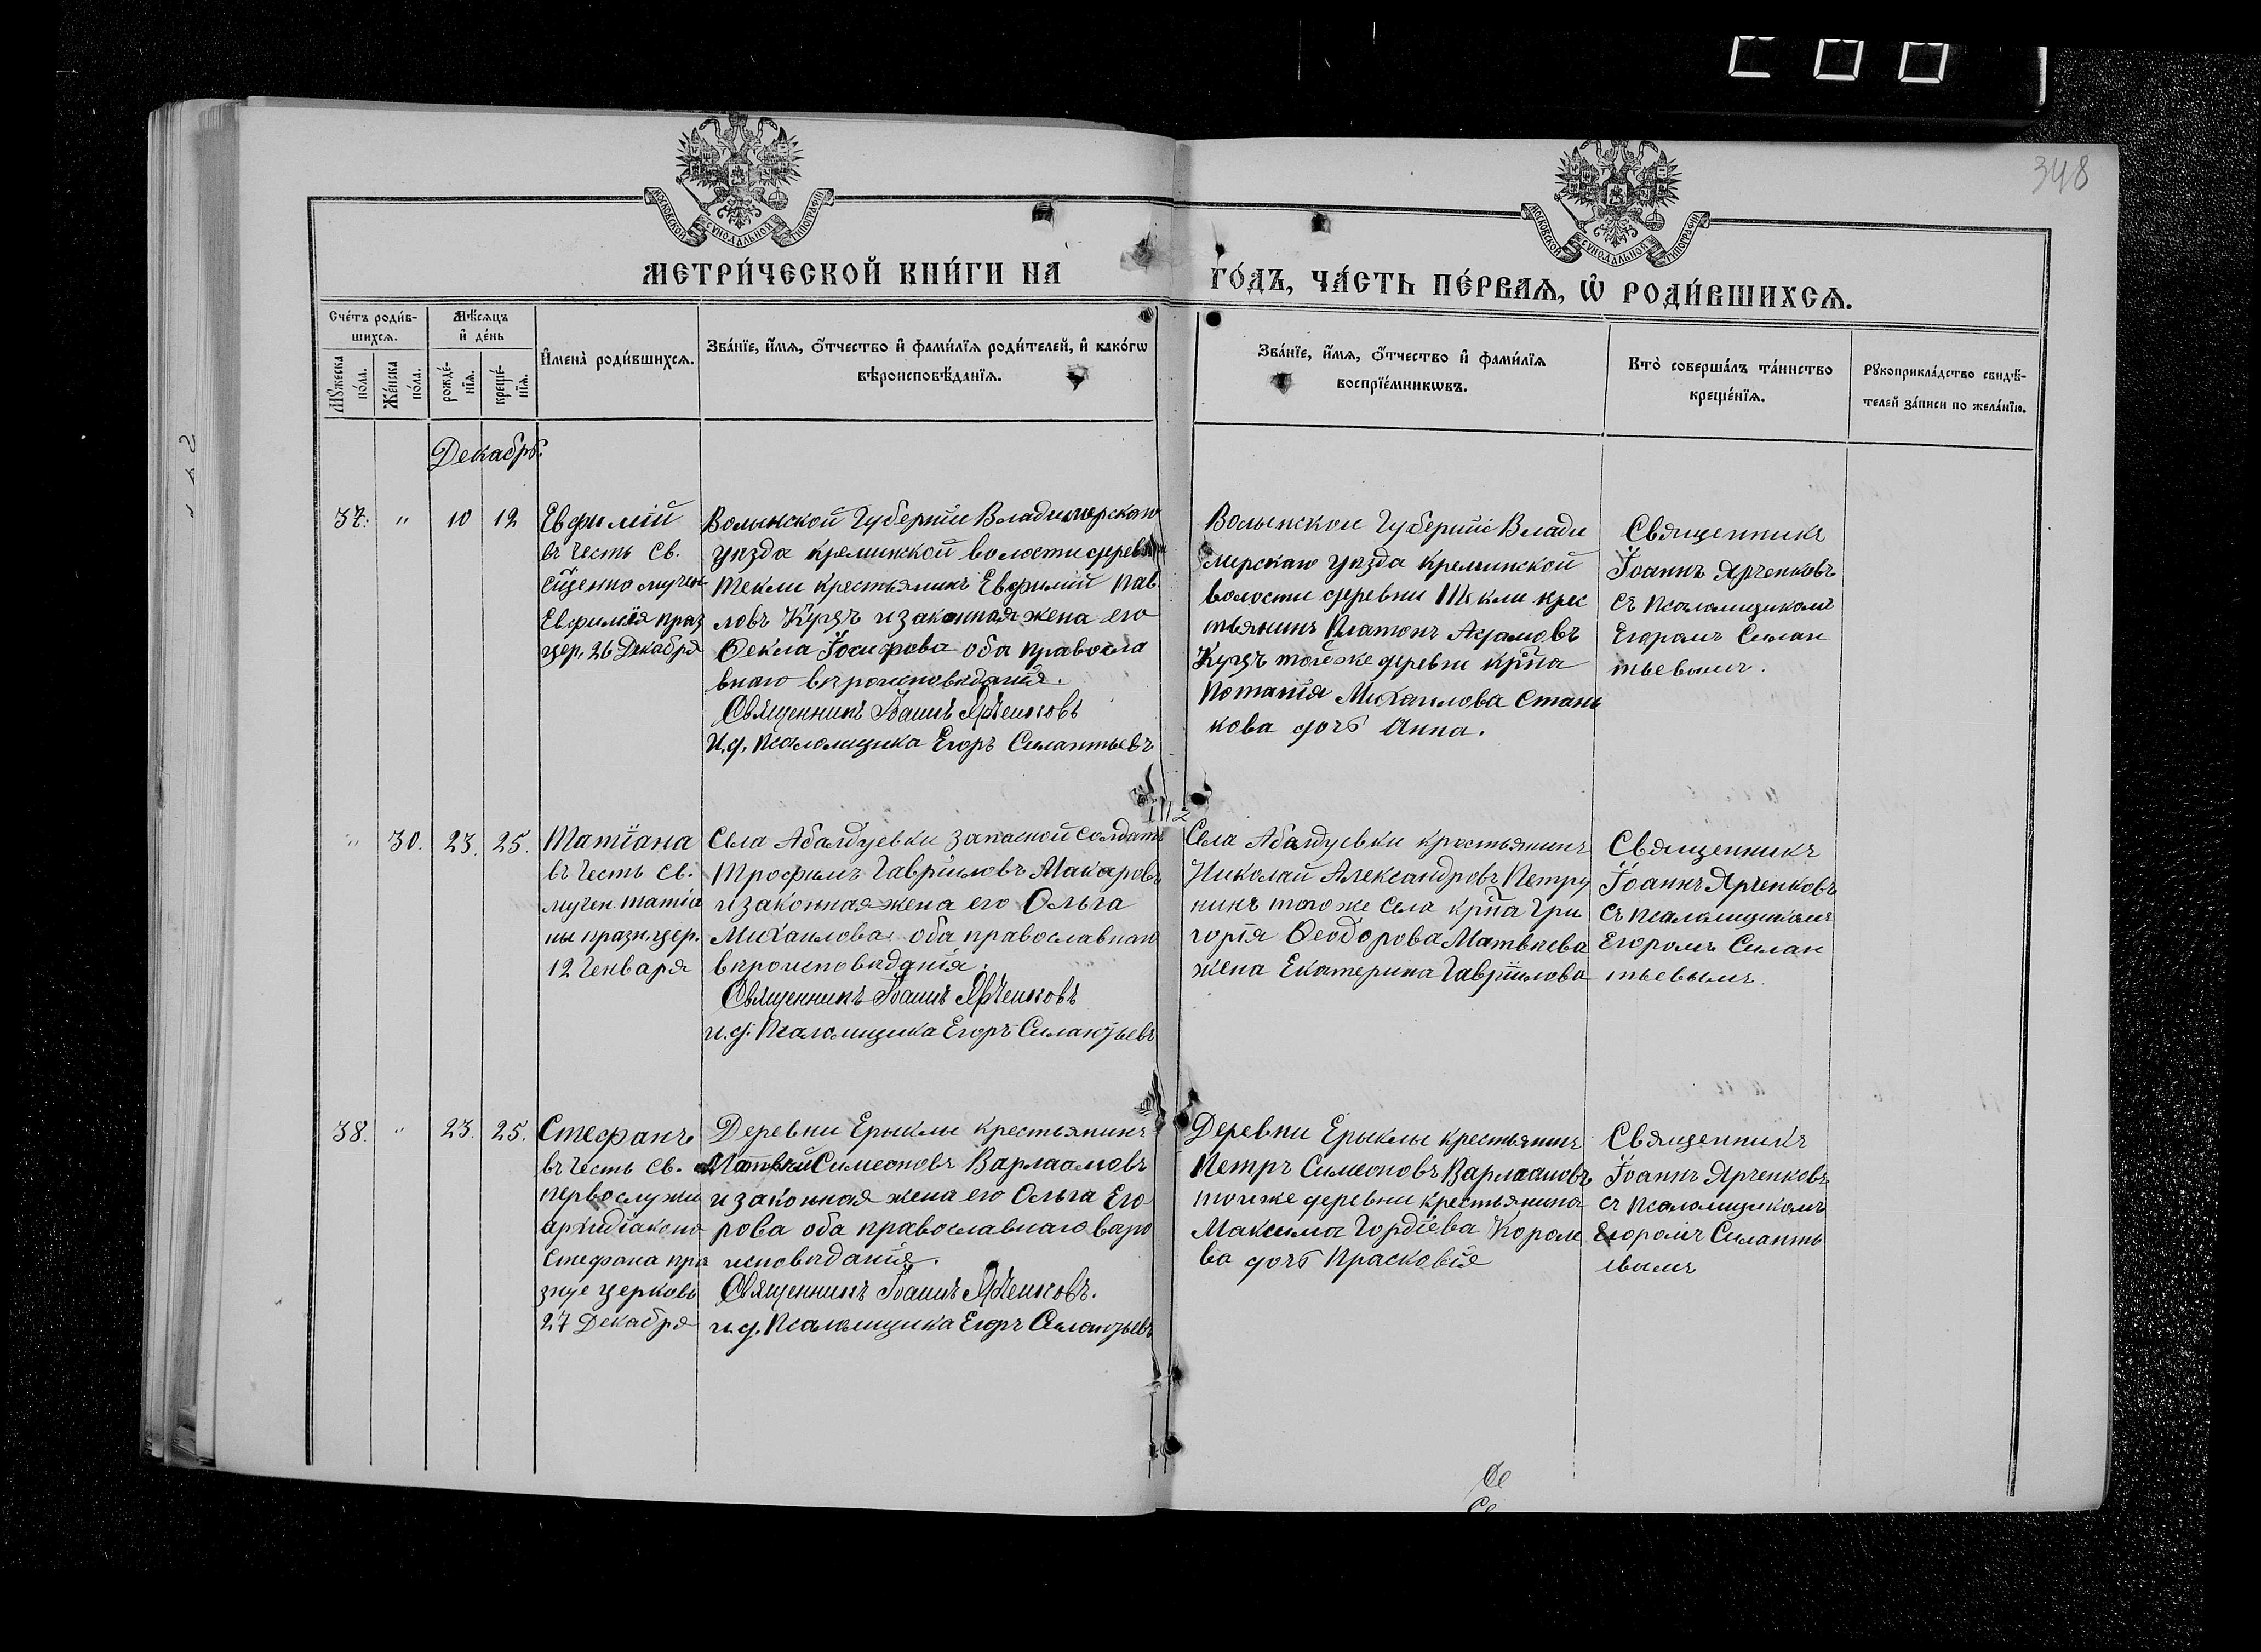 348
МОСКОВСКОЙ СѴНОДАЛЬНОЙ ТИПОГРАФІИ
МОСКОВСКОЙ СѴНОДАЛЬНОЙ ТИПОГРАФІИ
МЕТРИ́ЧЕСКОЙ КНИ́ГИ НА
ГО́ДЪ, ЧА́СТЬ ПЕ́РВАѦ, Ѽ РОДИ́ВШИХСѦ.
Сче́тъ роди́в-
шихсѧ.
Мѣ́сѧцъ
и҆ де́нь
Мꙋ́жеска
по́ла.
Же́нска
по́ла.
рожде́-
нїѧ.
креще́-
нїѧ.
И҆мена̀ роди́вшихсѧ.
Зва́нїе, и҆́мѧ, ѻ҆́тчество и҆ фами́лїѧ роди́телей, и҆ како́гѡ
вѣроисповѣ́данїѧ.
Зва́нїе, и҆́мѧ, ѻ҆́тчество и҆ фами́лїѧ
воспрїе́мникѡвъ.
Кто̀ соверша́лъ та́инство
креще́нїѧ.
Рꙋкоприкла́дство свидѣ́-
телей за́писи по жела́нїю.
Декабрь.
37. " 10 12
Евфимій
въ честь св.
Евфимія праз
цер. 26 Декабря
Волынской Губерніи Владимірскаго
уѣзда кременской волости деревни
Текли крестьянинъ Евфимій Пав
ловъ Куцъ и законная жена его
Ѳекла Іосифова оба правосла
внаго вѣроисповѣданія.
Священникъ Іоаннъ Ярченковъ
И.д. псаломщика Егоръ Силантьевъ
Волынской Губерніи Влади
мирскаго уѣзда Кременской
волости деревни Текли крес
тьянинъ Платонъ Адамовъ
Куцъ тойже деревни крпа
Потапія Михаилова Стань
кова дочь Анна.
Священникъ
Іоаннъ Ярченковъ
съ псаломщикомъ
Егоромъ Силан
тьевымъ.
" 30. 23. 25.
Татіана
въ честь св.
мучен. татіа
ны празн. цер.
12 Генваря
Села Абалдуевки запасной солдатъ
Трофимъ Гавріиловъ Макаровъ
и законная жена его Ольга
Михаилова оба православнаго
вѣроисповѣданія.
Священникъ Іоаннъ Ярченковъ
и.д. Псаломщика Егоръ Силантьевъ
Села Абалдуевки крестьянинъ
Николай Александровъ Петру
нинъ того же села крпа Гри
горія Ѳеодорова Матвѣева
жена Екатерина Гавріилова
Священникъ
Іоаннъ Ярченковъ
съ псаломщикомъ
Егоромъ Силан
тьевымъ.
38. " 23. 25.
Стефанъ
въ честь св.
первослужи
архидіакона
Стефана пра
знуе церковь
27 Декабря
Деревни Ерыклы крестьянинъ
Матвѣй Симеоновъ Варлаамовъ
и законная жена его Ольга Его
рова оба православнаго вѣро
исповѣданія.
Священникъ Іоаннъ Ярченковъ.
и.д. Псаломщика Егоръ Силантьевъ
Деревни Ерыклы крестьянинъ
Петръ Симеоновъ Варлаамовъ
тойже деревни крестьянина
Максима Гордіева Короле
ва дочь Прасковія
Священникъ
Іоаннъ Ярченковъ
съ псаломщикомъ
Егоромъ Силанть
евымъ